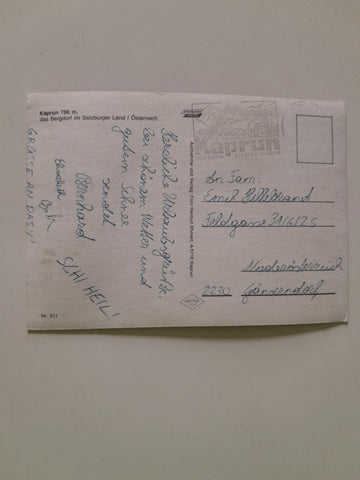 Kaprun 786 m,
das Bergdorf im Salzburger Land / Österreich.
Herzliche Urlaubsgrüße,
bei schönem Wetter und
gutem Schnee
sendet
Bernhard
Elisabeth
SCHI HEIL!
GRÜSSE AN DASY!
Nr. 211
Aufnahme und Verlag: Foto Helmut Ehmen, A-5710 Kaprun
Kaprun
An Fam.
Emil Hillebrand
Feldgasse 31/6/25
Niederösterreich
2230 Gänserndorf